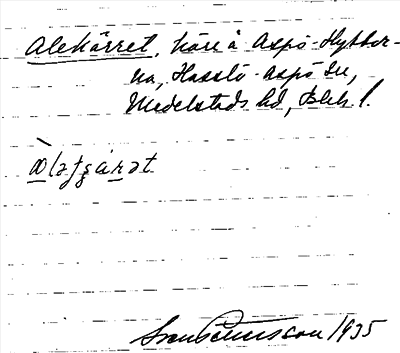 Alekärret, kärr å Aspö-Hyttor-
na, Hasslö-Aspö sn,
Medelstads hd, Blek l.
Sven Petersson 1935